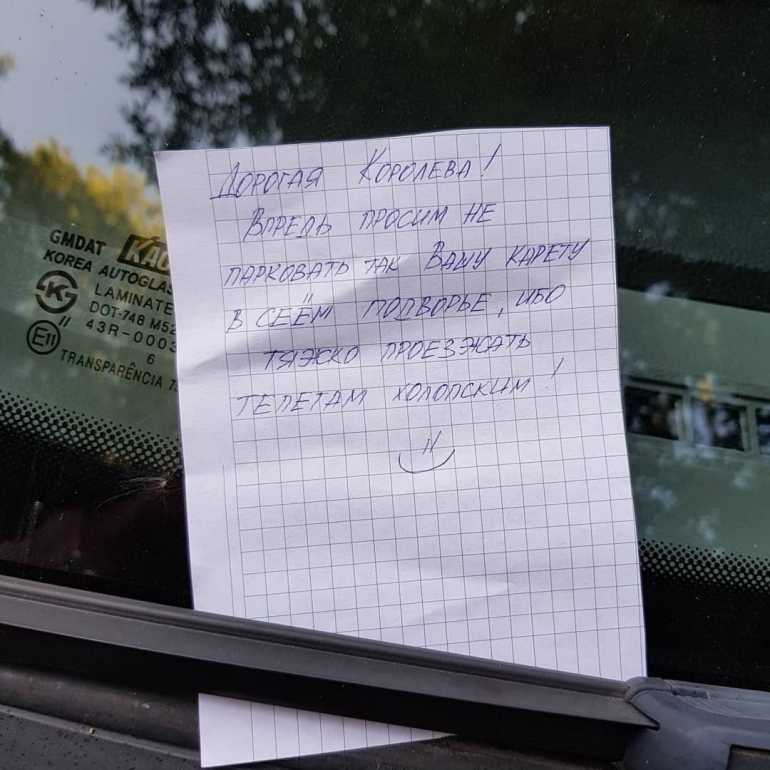 Дорогая Королева!
Впредь просим не
парковать так Вашу карету
в сеём подворье, ибо
тяжко проезжать
телегам холопским!
GMDAT KAC
KOREA AUTOGLAS
LAMINATE
DOT-748 M52
43R-0003
E11
6
TRANSPARÊNCIA 7